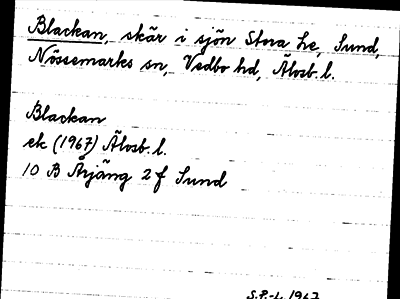 Blackan, skär i sjön Stora Le, Sund,
Nössemarks sn, Vedbo hd, Älvsb. l.
Blackan
ek (1967) Älvsb. l.
10 B Årjäng 2 f Sund
S.P.-L. 1967